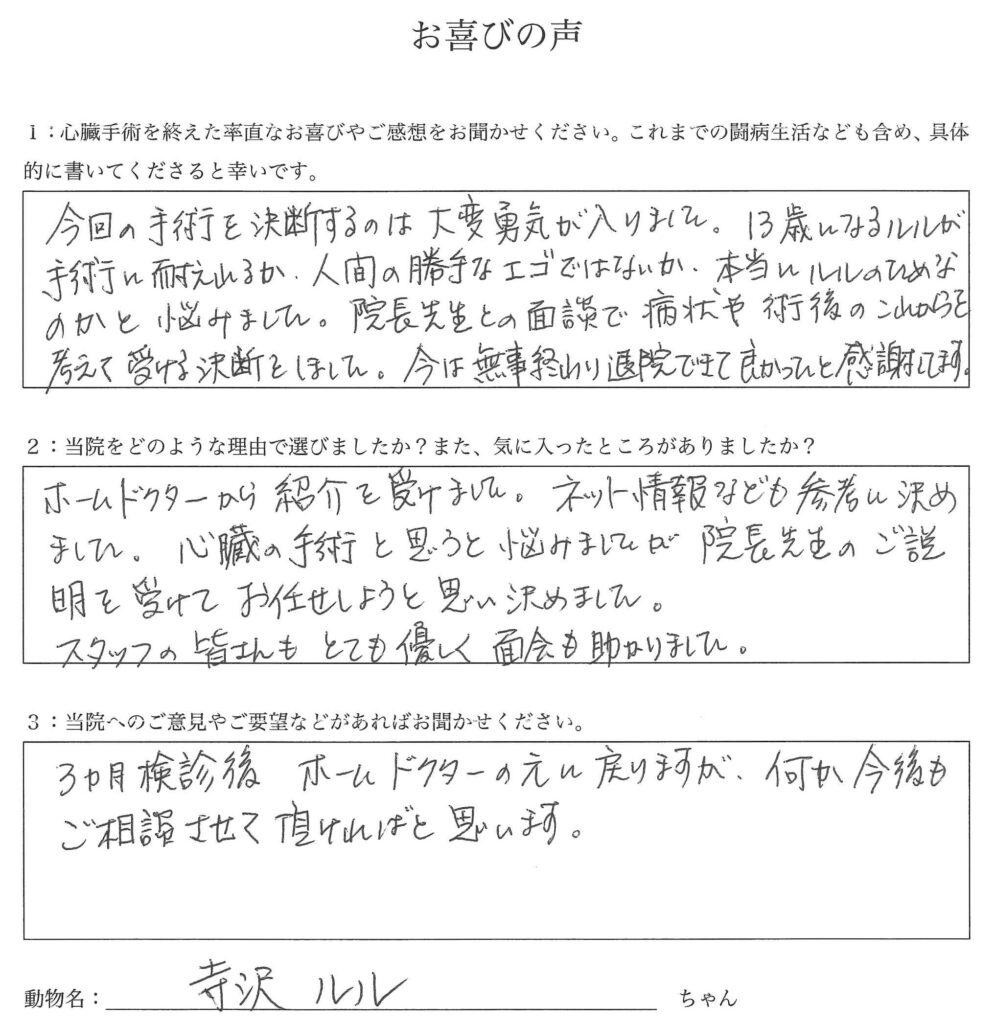 お喜びの声
1：心臓手術を終えた率直なお喜びやご感想をお聞かせください。これまでの闘病生活なども含め、具体
的に書いてくださると幸いです。
今回の手術を決断するのは大変勇気が入りました。13歳になるルルが
手術に耐えれるか、人間の勝手なエゴではないか、本当にルルのためな
のかと悩みました。院長先生との面談で病状や術後のこれからを
考えて受ける決断をしました。今は無事終わり退院できて良かったと感謝してます。
2：当院をどのような理由で選びましたか？また、気に入ったところがありましたか？
ホームドクターから紹介を受けました。ネット情報なども参考に決め
ました。心臓の手術と思うと悩みましたが院長先生のご説
明を受けてお任せしようと思い決めました。
スタッフの皆さんもとても優しく面会も助かりました。
3：当院へのご意見やご要望などがあればお聞かせください。
3ヵ月検診後 ホームドクターの元に戻りますが、何か今後も
ご相談させて頂ければと思います。
動物名：寺沢 ルル ちゃん